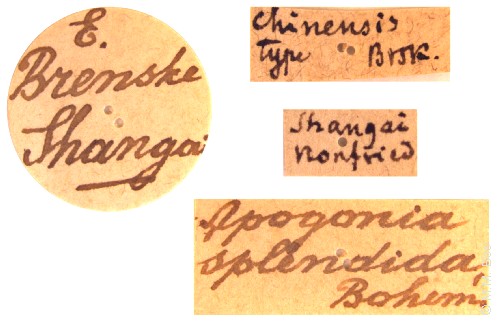 E.
Brenske
Shangai
Chinensis
type Brsk.
Shangai
Nonfried
Apogonia
splendida,
Bohem.